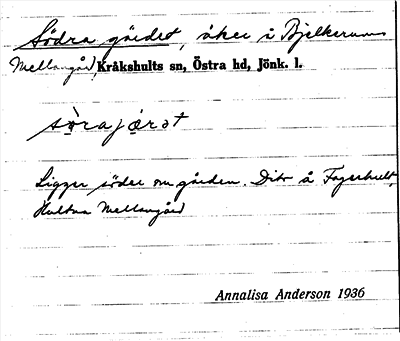 Södra gärdet, åker i Bjelkerums
Mellangård, Kråkshults sn, Östra hd, Jönk. l.
sö̀rajǽrət
Ligger söder om gården. Dito å Fagerhult,
Hultna Mellangård
Annalisa Anderson 1936